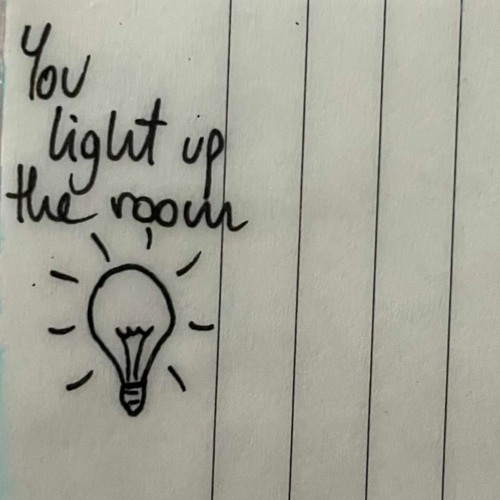 You
light up
the room